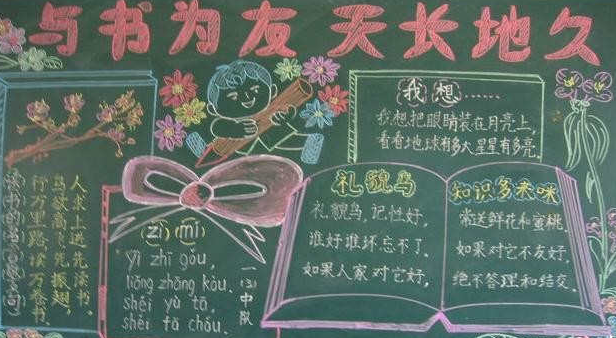 与书为友 天长地久
读书的名言名句
人求上进先读书，
鸟欲高飞先振翅。
行万里路读万卷书
(zì)(mí)
yì zhī gǒu,
liǎng zhāng kǒu.
shéi yù tā,
shéi tā chǎu.
一(3)中队
我想……
我想把眼睛装在月亮上，
看看地球有多大星星有多亮。
礼貌鸟
礼貌鸟，记性好，
谁好谁坏忘不了。
如果人家对它好，
知识多来咪
常送鲜花和蜜桃。
如果对它不友好，
绝不答理和结交。